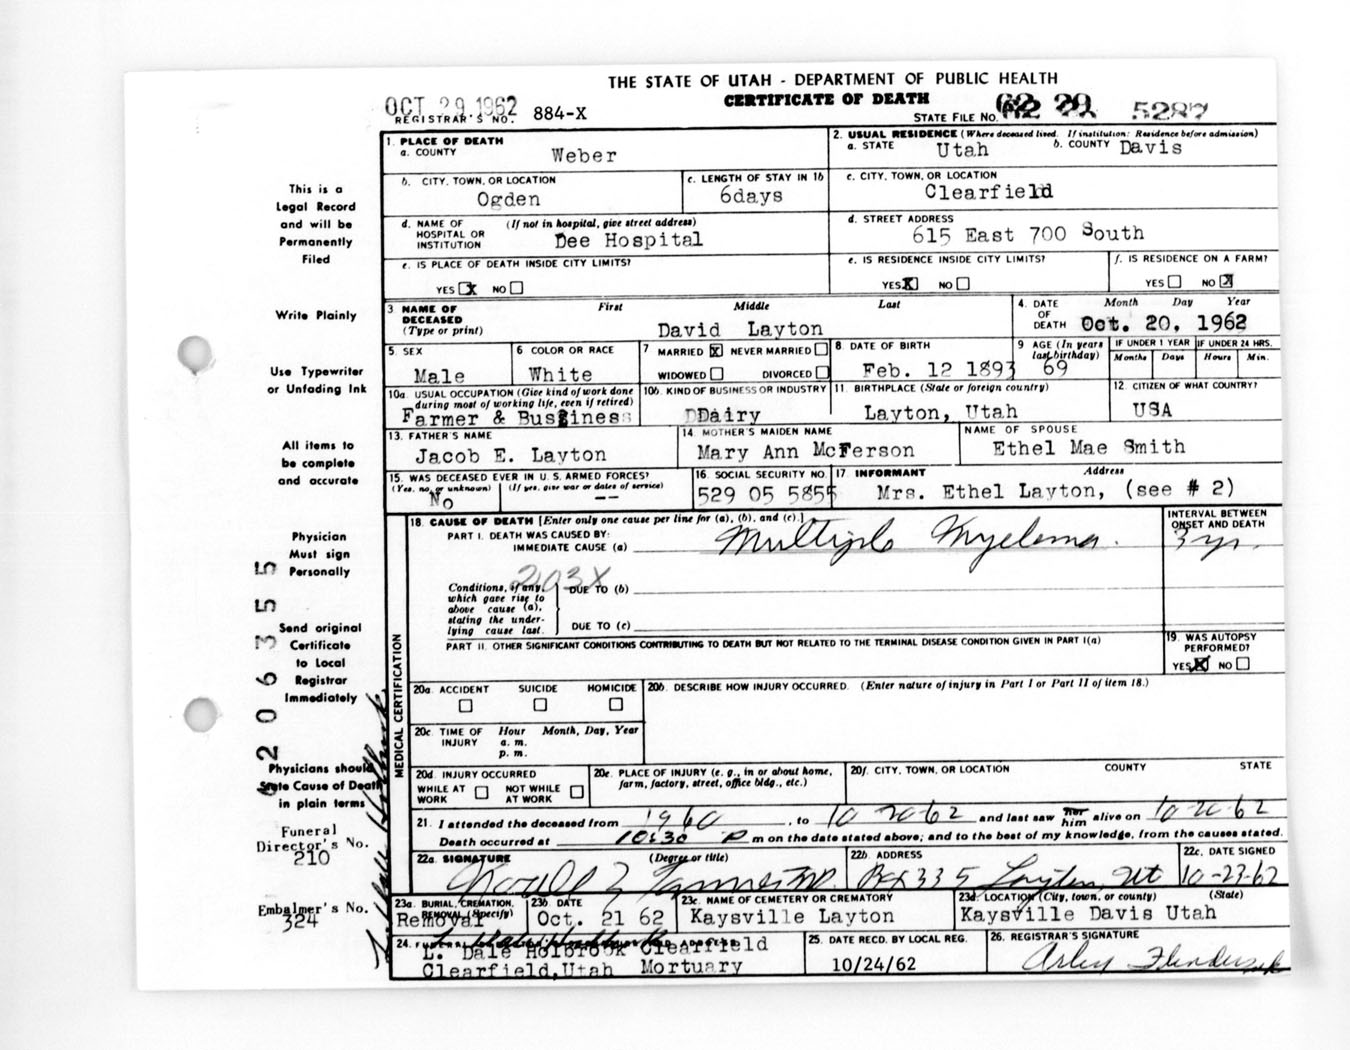 THE STATE OF UTAH - DEPARTMENT OF PUBLIC HEALTH
CERTIFICATE OF DEATH
OCT 29 1962
REGISTRAR'S NO. 884-X
STATE FILE NO. 62 29 5287
1. PLACE OF DEATH
a. COUNTY Weber
2. USUAL RESIDENCE (Where deceased lived. If institution: Residence before admission)
a. STATE Utah b. COUNTY Davis
b. CITY, TOWN, OR LOCATION Ogden
c. LENGTH OF STAY IN 1b 6days
c. CITY, TOWN, OR LOCATION Clearfield
d. NAME OF HOSPITAL OR INSTITUTION (If not in hospital, give street address) Dee Hospital
d. STREET ADDRESS 615 East 700 South
e. IS PLACE OF DEATH INSIDE CITY LIMITS? YES X NO
e. IS RESIDENCE INSIDE CITY LIMITS? YES X NO
f. IS RESIDENCE ON A FARM? YES NO X
3 NAME OF DECEASED (Type or print) First Middle Last
David Layton
4. DATE OF DEATH Month Day Year
Oct. 20, 1962
5. SEX Male
6 COLOR OR RACE White
7 MARRIED X NEVER MARRIED WIDOWED DIVORCED
8 DATE OF BIRTH Feb. 12 1893
9 AGE (In years last birthday) 69
IF UNDER 1 YEAR Months Days
IF UNDER 24 HRS. Hours Min.
10a. USUAL OCCUPATION (Give kind of work done during most of working life, even if retired)
Farmer & Business
10b. KIND OF BUSINESS OR INDUSTRY Dairy
11. BIRTHPLACE (State or foreign country) Layton, Utah
12. CITIZEN OF WHAT COUNTRY? USA
13. FATHER'S NAME Jacob E. Layton
14. MOTHER'S MAIDEN NAME Mary Ann McFerson
NAME OF SPOUSE Ethel Mae Smith
15. WAS DECEASED EVER IN U. S. ARMED FORCES?
(Yes, no, or unknown) (If yes, give war or dates of service)
No --
16. SOCIAL SECURITY NO. 529 05 5855
17. INFORMANT Address
Mrs. Ethel Layton, (see # 2)
MEDICAL CERTIFICATION
18. CAUSE OF DEATH [Enter only one cause per line for (a), (b), and (c).]
PART I. DEATH WAS CAUSED BY:
IMMEDIATE CAUSE (a) Multiple Myeloma.
INTERVAL BETWEEN ONSET AND DEATH
3 yr.
203X
Conditions, if any, which gave rise to above cause (a), stating the underlying cause last.
DUE TO (b)
DUE TO (c)
PART II. OTHER SIGNIFICANT CONDITIONS CONTRIBUTING TO DEATH BUT NOT RELATED TO THE TERMINAL DISEASE CONDITION GIVEN IN PART I(a)
19. WAS AUTOPSY PERFORMED?
YES X NO
20a. ACCIDENT SUICIDE HOMICIDE
20b. DESCRIBE HOW INJURY OCCURRED. (Enter nature of injury in Part I or Part II of item 18.)
20c. TIME OF INJURY Hour Month, Day, Year
a. m.
p. m.
20d. INJURY OCCURRED
WHILE AT WORK NOT WHILE AT WORK
20e. PLACE OF INJURY (e. g., in or about home, farm, factory, street, office bldg., etc.)
20f. CITY, TOWN, OR LOCATION COUNTY STATE
21. I attended the deceased from 1960, to 10-20-62 and last saw her him alive on 10-20-62
Death occurred at 10:30 P m on the date stated above; and to the best of my knowledge, from the causes stated.
22a. SIGNATURE (Degree or title)
22b. ADDRESS Box 335 Layton, Ut
22c. DATE SIGNED 10-23-62
23a. BURIAL, CREMATION, REMOVAL (Specify) Removal
23b DATE Oct. 21 62
23c. NAME OF CEMETERY OR CREMATORY Kaysville Layton
23d. LOCATION (City, town, or county) (State)
Kaysville Davis Utah
24. FUNERAL
L. Dale Holbrook Clearfield
Clearfield, Utah Mortuary
25. DATE RECD. BY LOCAL REG. 10/24/62
26. REGISTRAR'S SIGNATURE
This is a
Legal Record
and will be
Permanently
Filed
Write Plainly
Use Typewriter
or Unfading Ink
All items to
be complete
and accurate
Physician
Must sign
Personally
Send original
Certificate
to Local
Registrar
Immediately
Physicians should
State Cause of Death
in plain terms
Funeral
Director's No.
210
Embalmer's No.
324